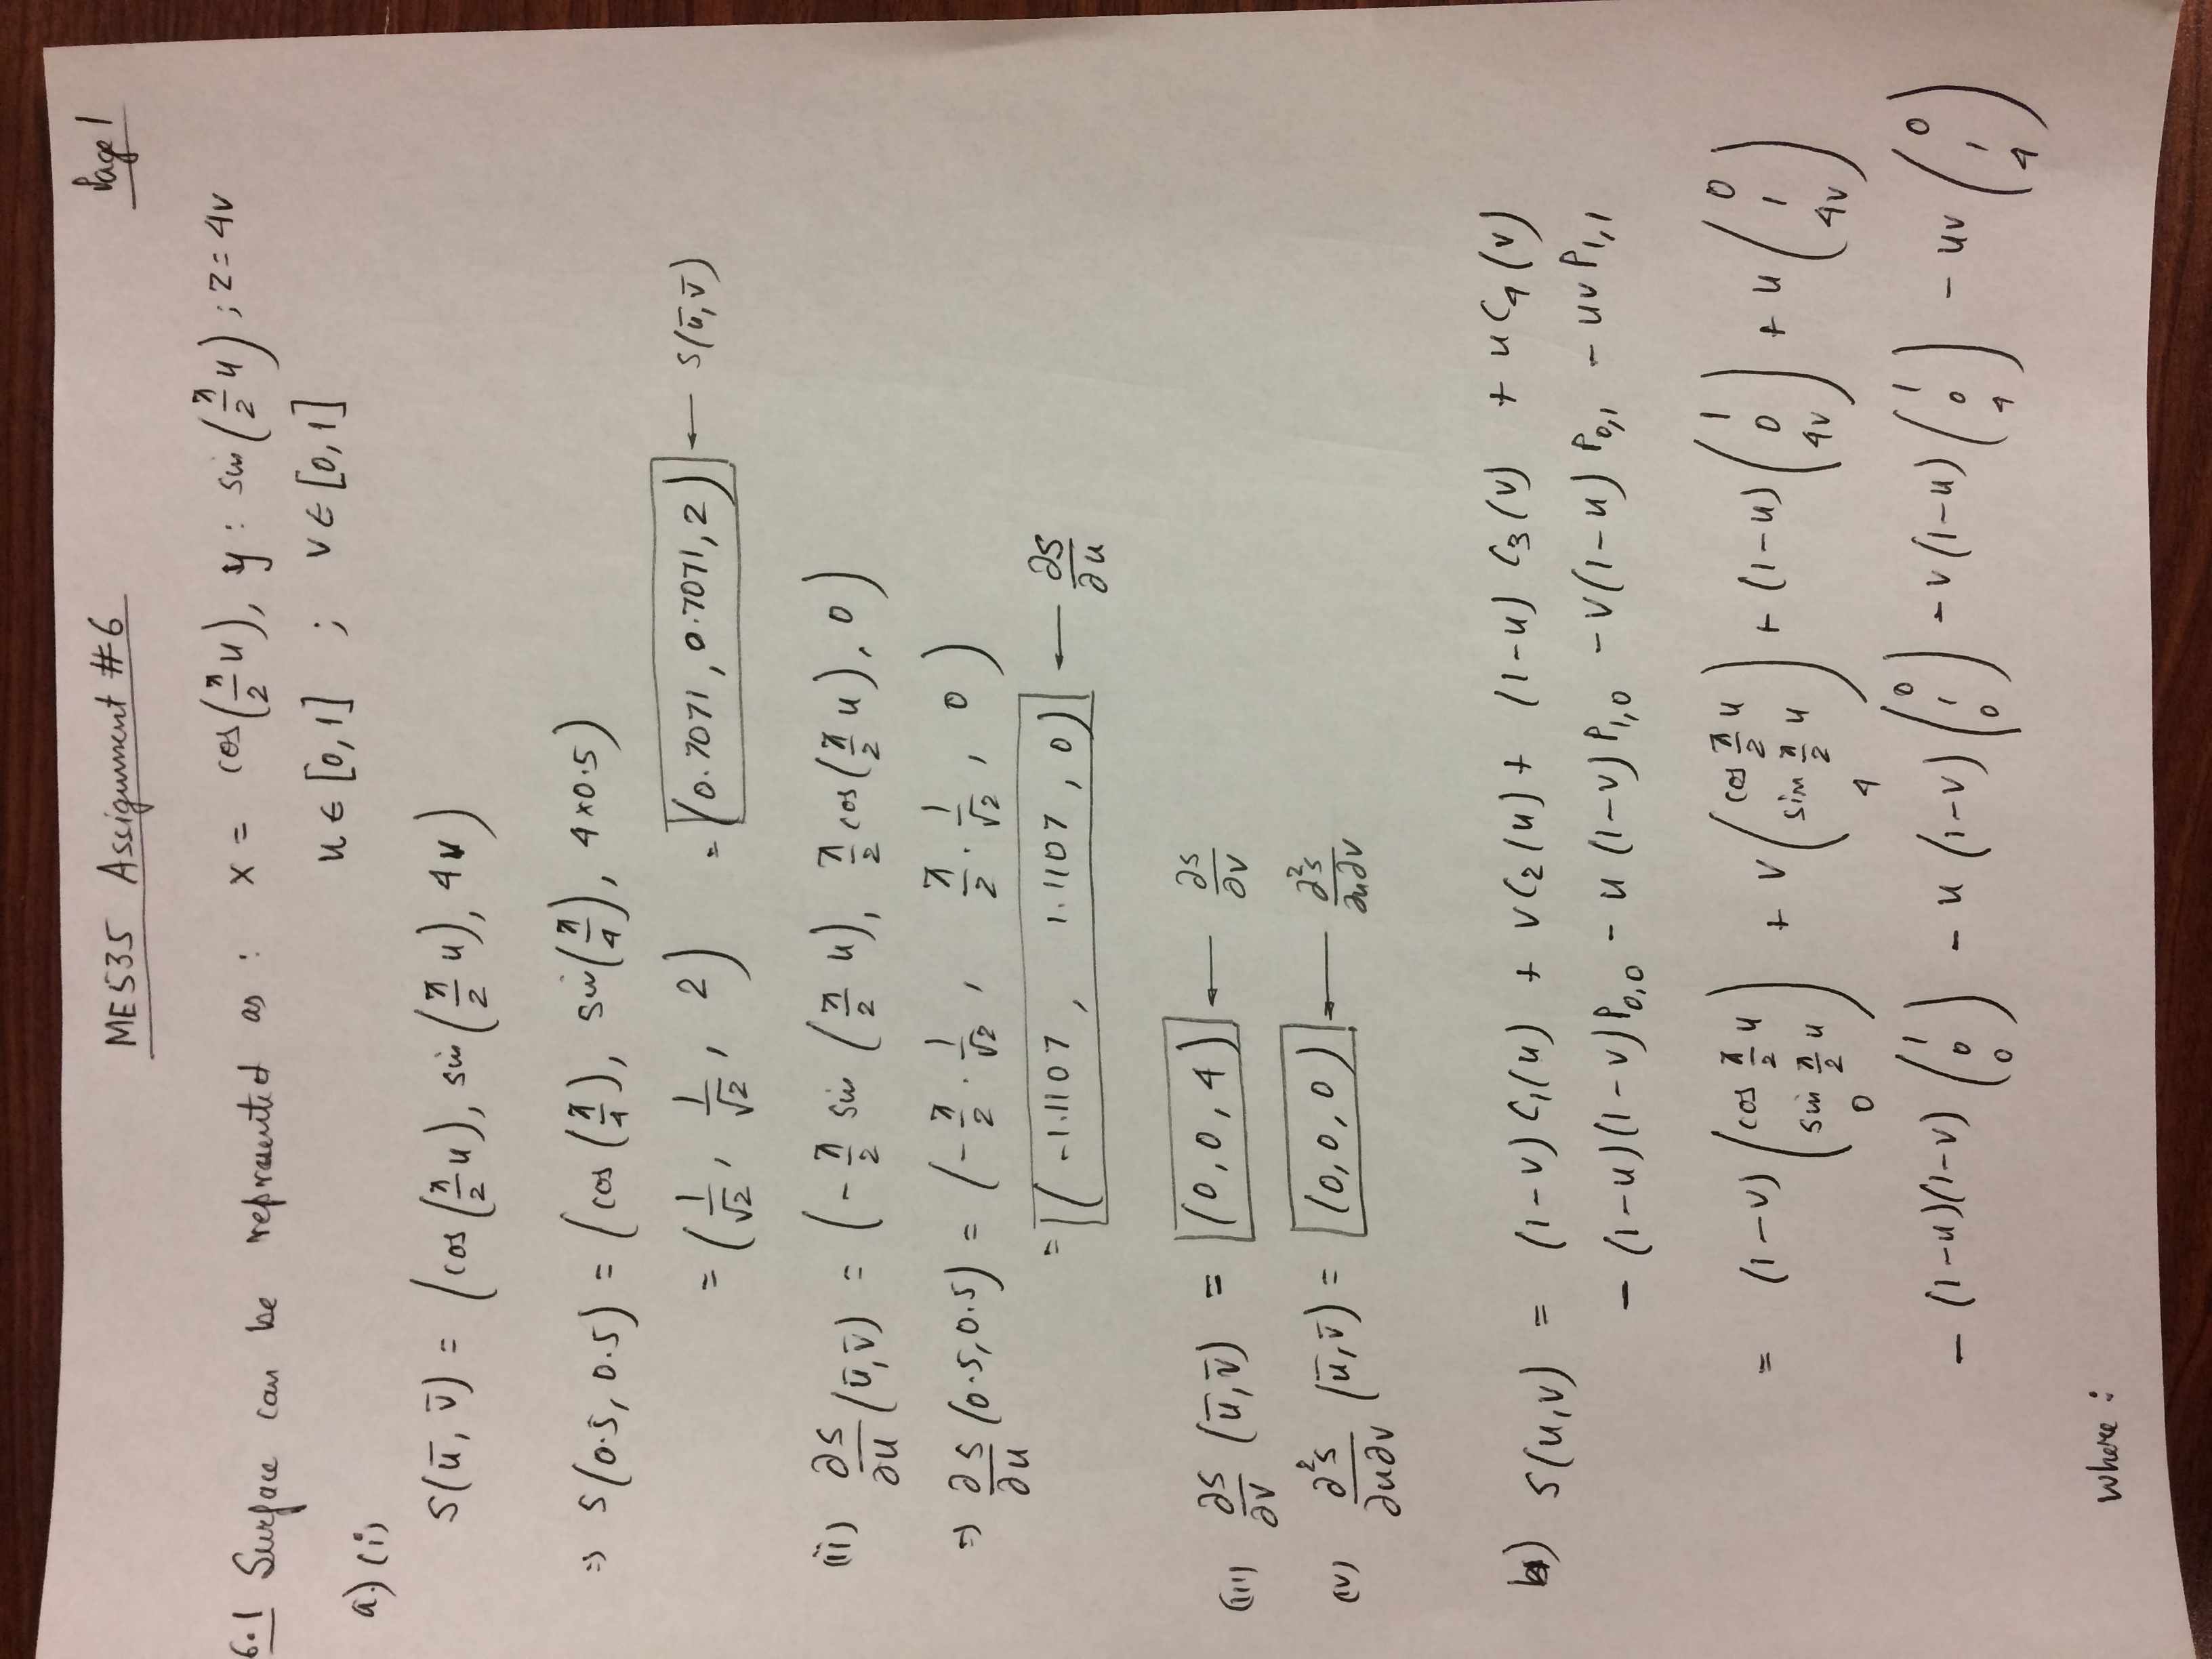 ME535 Assignment #6
Page 1
6.1 Surface can be represented as : x = cos(π/2 u), y : sin(π/2 u) ; z = 4v
u ∈ [0,1] ; v ∈ [0,1]
a) (i)
S(ū, v̄) = (cos(π/2 u), sin(π/2 u), 4v)
⇒ S(0.5, 0.5) = (cos(π/4), sin(π/4), 4×0.5)
= (1/√2, 1/√2, 2) = (0.7071, 0.7071, 2) ← S(ū, v̄)
(ii) ∂S/∂u (ū, v̄) = (-π/2 sin(π/2 u), π/2 cos(π/2 u), 0)
⇒ ∂S/∂u (0.5, 0.5) = (-π/2 · 1/√2, π/2 · 1/√2, 0)
= (-1.1107, 1.1107, 0) ← ∂S/∂u
(iii) ∂S/∂v (ū, v̄) = (0, 0, 4) ← ∂S/∂v
(iv) ∂²S/∂u∂v (ū, v̄) = (0, 0, 0) ← ∂²S/∂u∂v
b) S(u,v) = (1-v) C₁(u) + v C₂(u) + (1-u) C₃(v) + u C₄(v)
- (1-u)(1-v) P₀,₀ - u (1-v) P₁,₀ - v(1-u) P₀,₁ - uv P₁,₁
= (1-v) (cos π/2 u, sin π/2 u, 0) + v (cos π/2 u, sin π/2 u, 4) + (1-u) (1, 0, 4v) + u (0, 1, 4v)
- (1-u)(1-v) (1, 0, 0) - u (1-v) (0, 1, 0) - v(1-u) (1, 0, 4) - uv (0, 1, 4)
where :